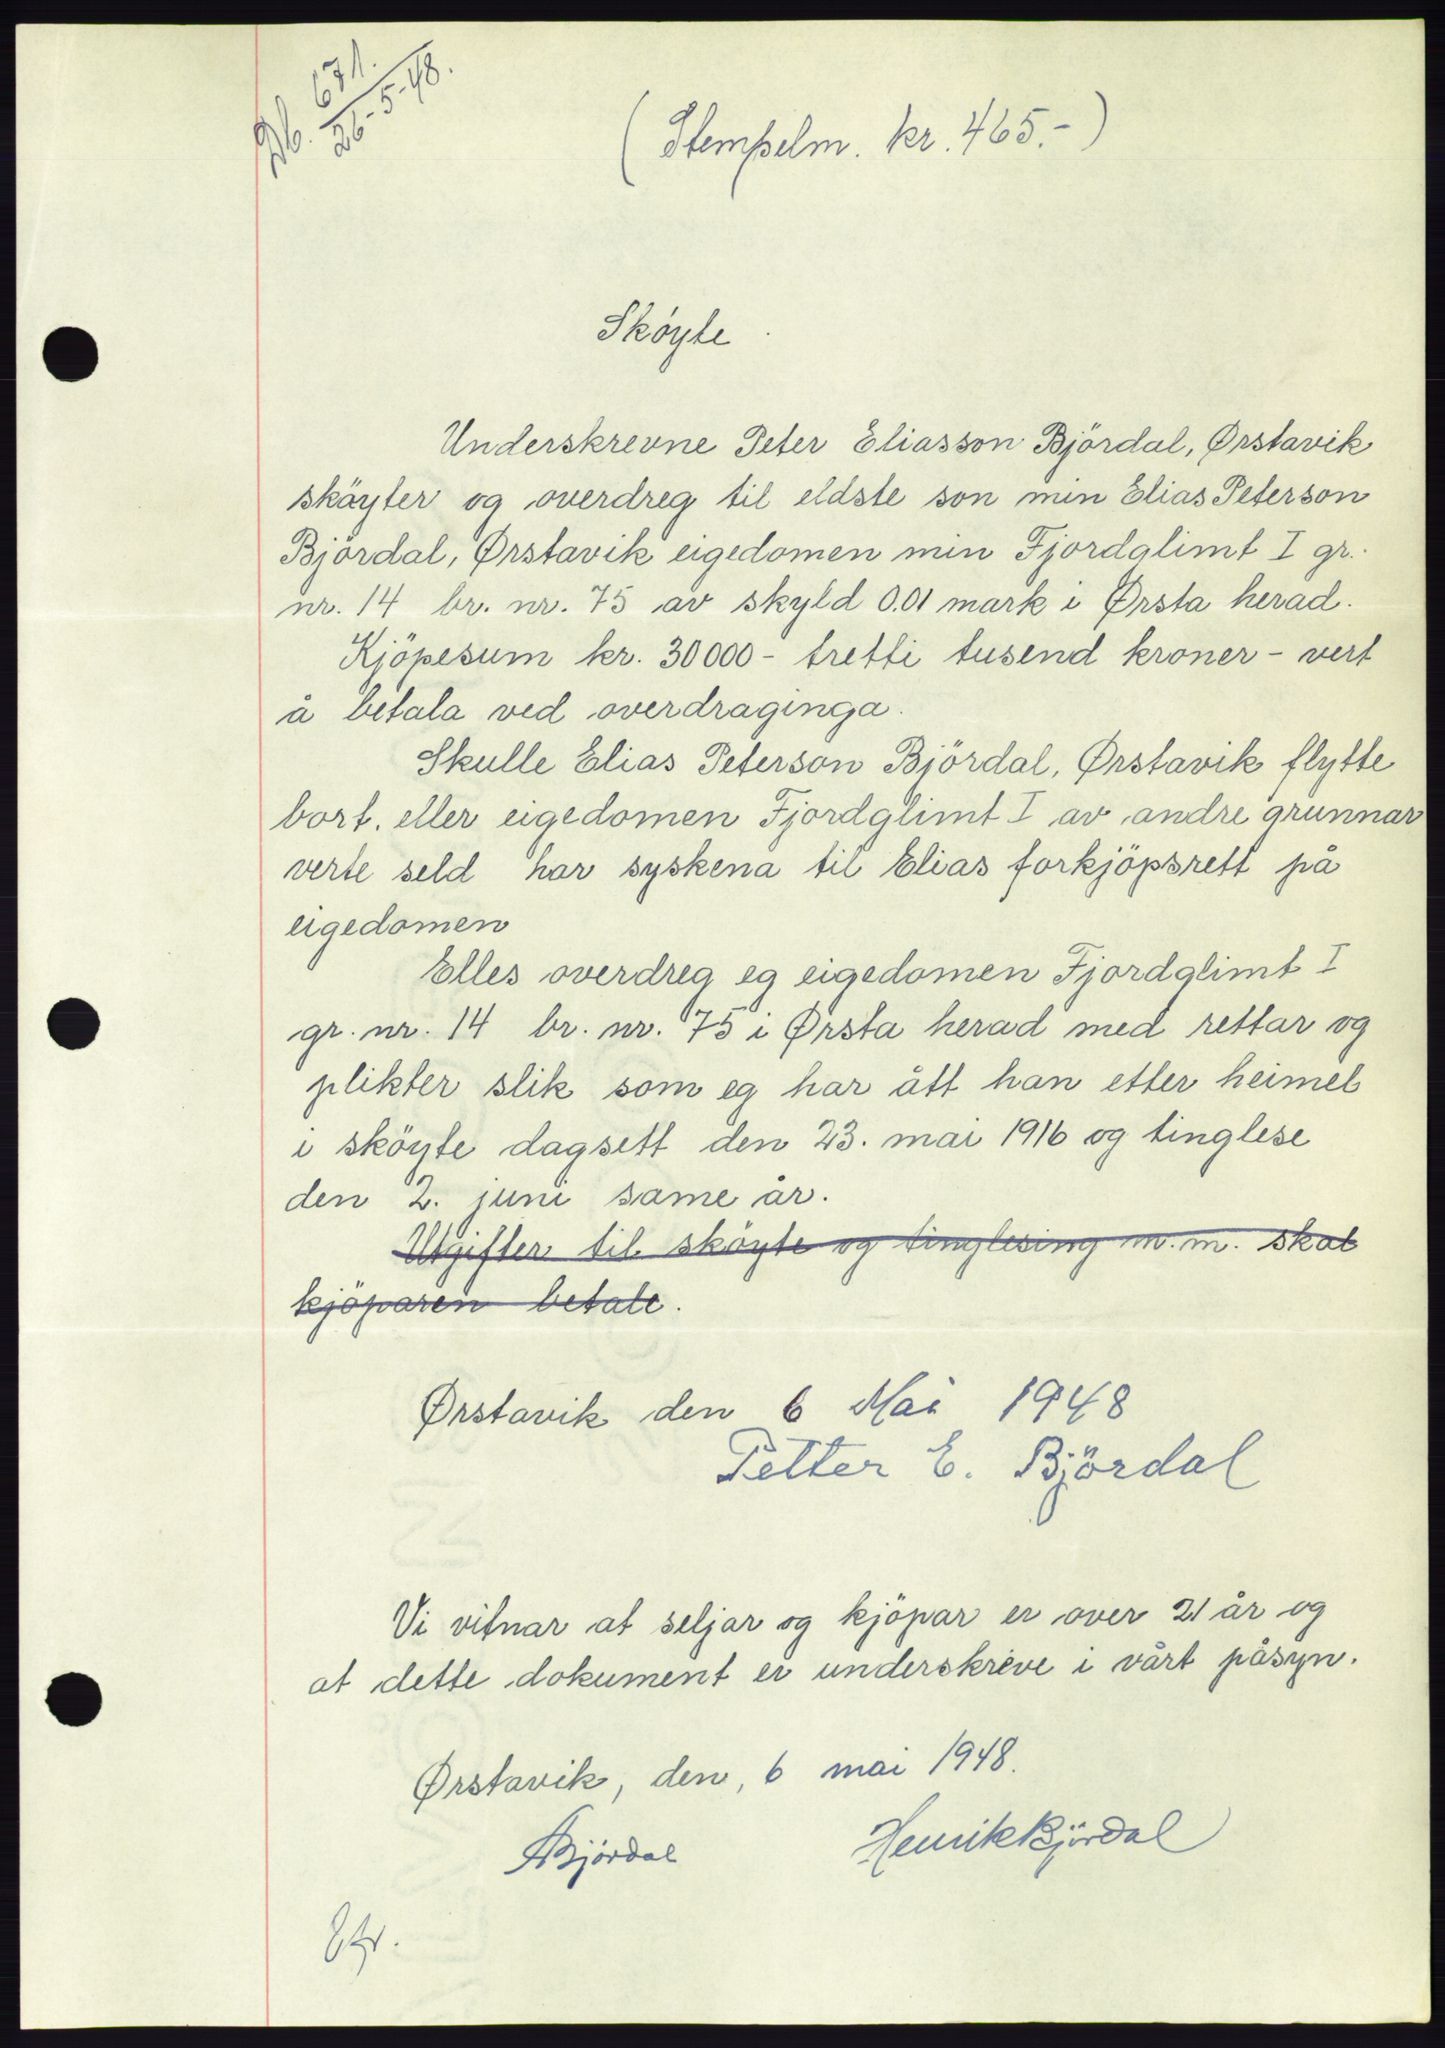 Db. 671.
26-5-48.
(Stempelm. kr. 465.-)
Sköyte
Underskrevne Peter Eliasson Björdal, Ørstavik
sköyter og overdreg til eldste son min Elias Peterson
Björdal, Ørstavik eigedomen min Fjordglimt I gr.
nr. 14 br. nr. 75 av skyld 0.01 mark i Ørsta herad.
Kjöpesum kr. 30000 - tretti tusend kroner - vert
å betala ved overdraginga.
Skulle Elias Peterson Björdal, Ørstavik flytte
bort, eller eigedomen Fjordglimt I av andre grunnar
verte seld har syskena til Elias forkjöpsrett på
eigedomen
Elles overdreg eg eigedomen Fjordglimt I
gr. nr. 14 br. nr. 75 i Ørsta herad med rettar og
plikter slik som eg har ått han etter heimel
i sköyte dagsett den 23. mai 1916 og tinglese
den 2. juni same år.
Utgifter til sköyte og tinglesing m.m. skal
kjöparen betale.
Ørstavik den 6 Mai 1948
Petter E. Björdal
Vi vitnar at seljar og kjöpar er over 21 år og
at dette dokument er underskreve i vårt påsyn.
Ørstavik, den, 6 mai 1948.
ABjördal Henrik Björdal